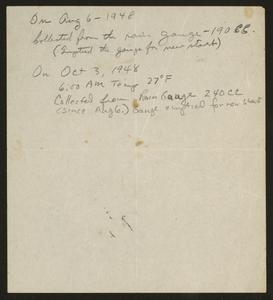 On Aug 6 - 1948
Collected from the rain gauge - 190 cc.
(Emptied the gauge for new start)
On Oct 3, 1948
6:00 AM Temp 27°F
Collected from Rain Gauge 240 cc
(since Aug 6.) Gauge emptied for new start